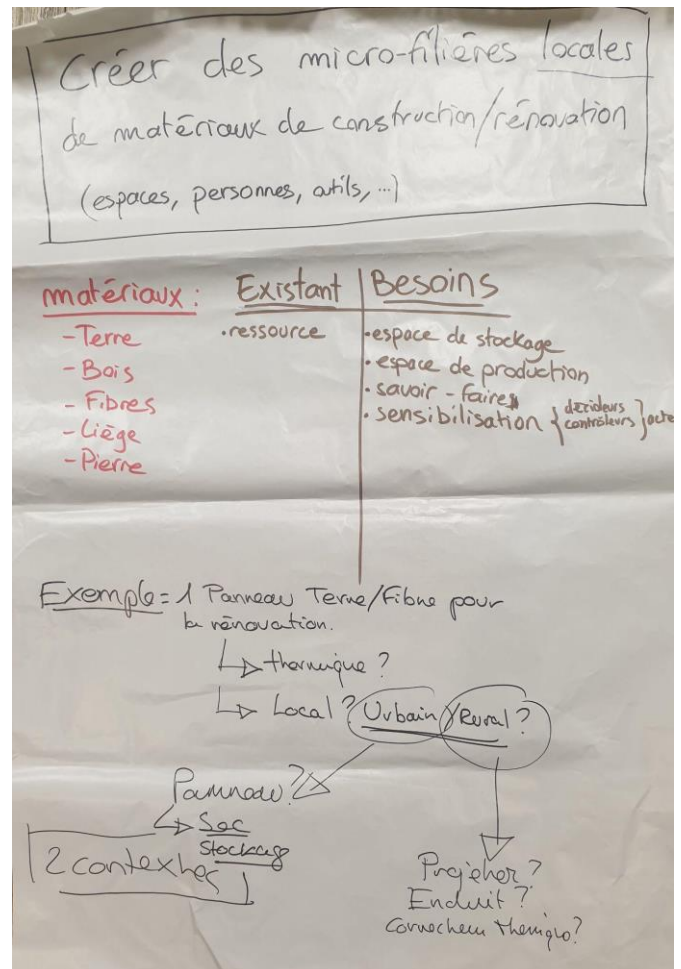 Créer des micro-filières locales
de matériaux de construction/rénovation
(espaces, personnes, outils, ...)
matériaux :
- Terre
- Bois
- Fibres
- Liège
- Pierre
Existant
• ressource
Besoins
• espace de stockage
• espace de production
• savoir-faires
• sensibilisation { décideurs
contrôleurs } acte
Exemple = 1 Panneau Terre/Fibre pour
la rénovation.
↳ thermique ?
↳ Local ? Urbain / Rural ?
Panneau ?
↳ Sec
Stockage
2 contextes
Projeter ?
Enduit ?
thermique ?